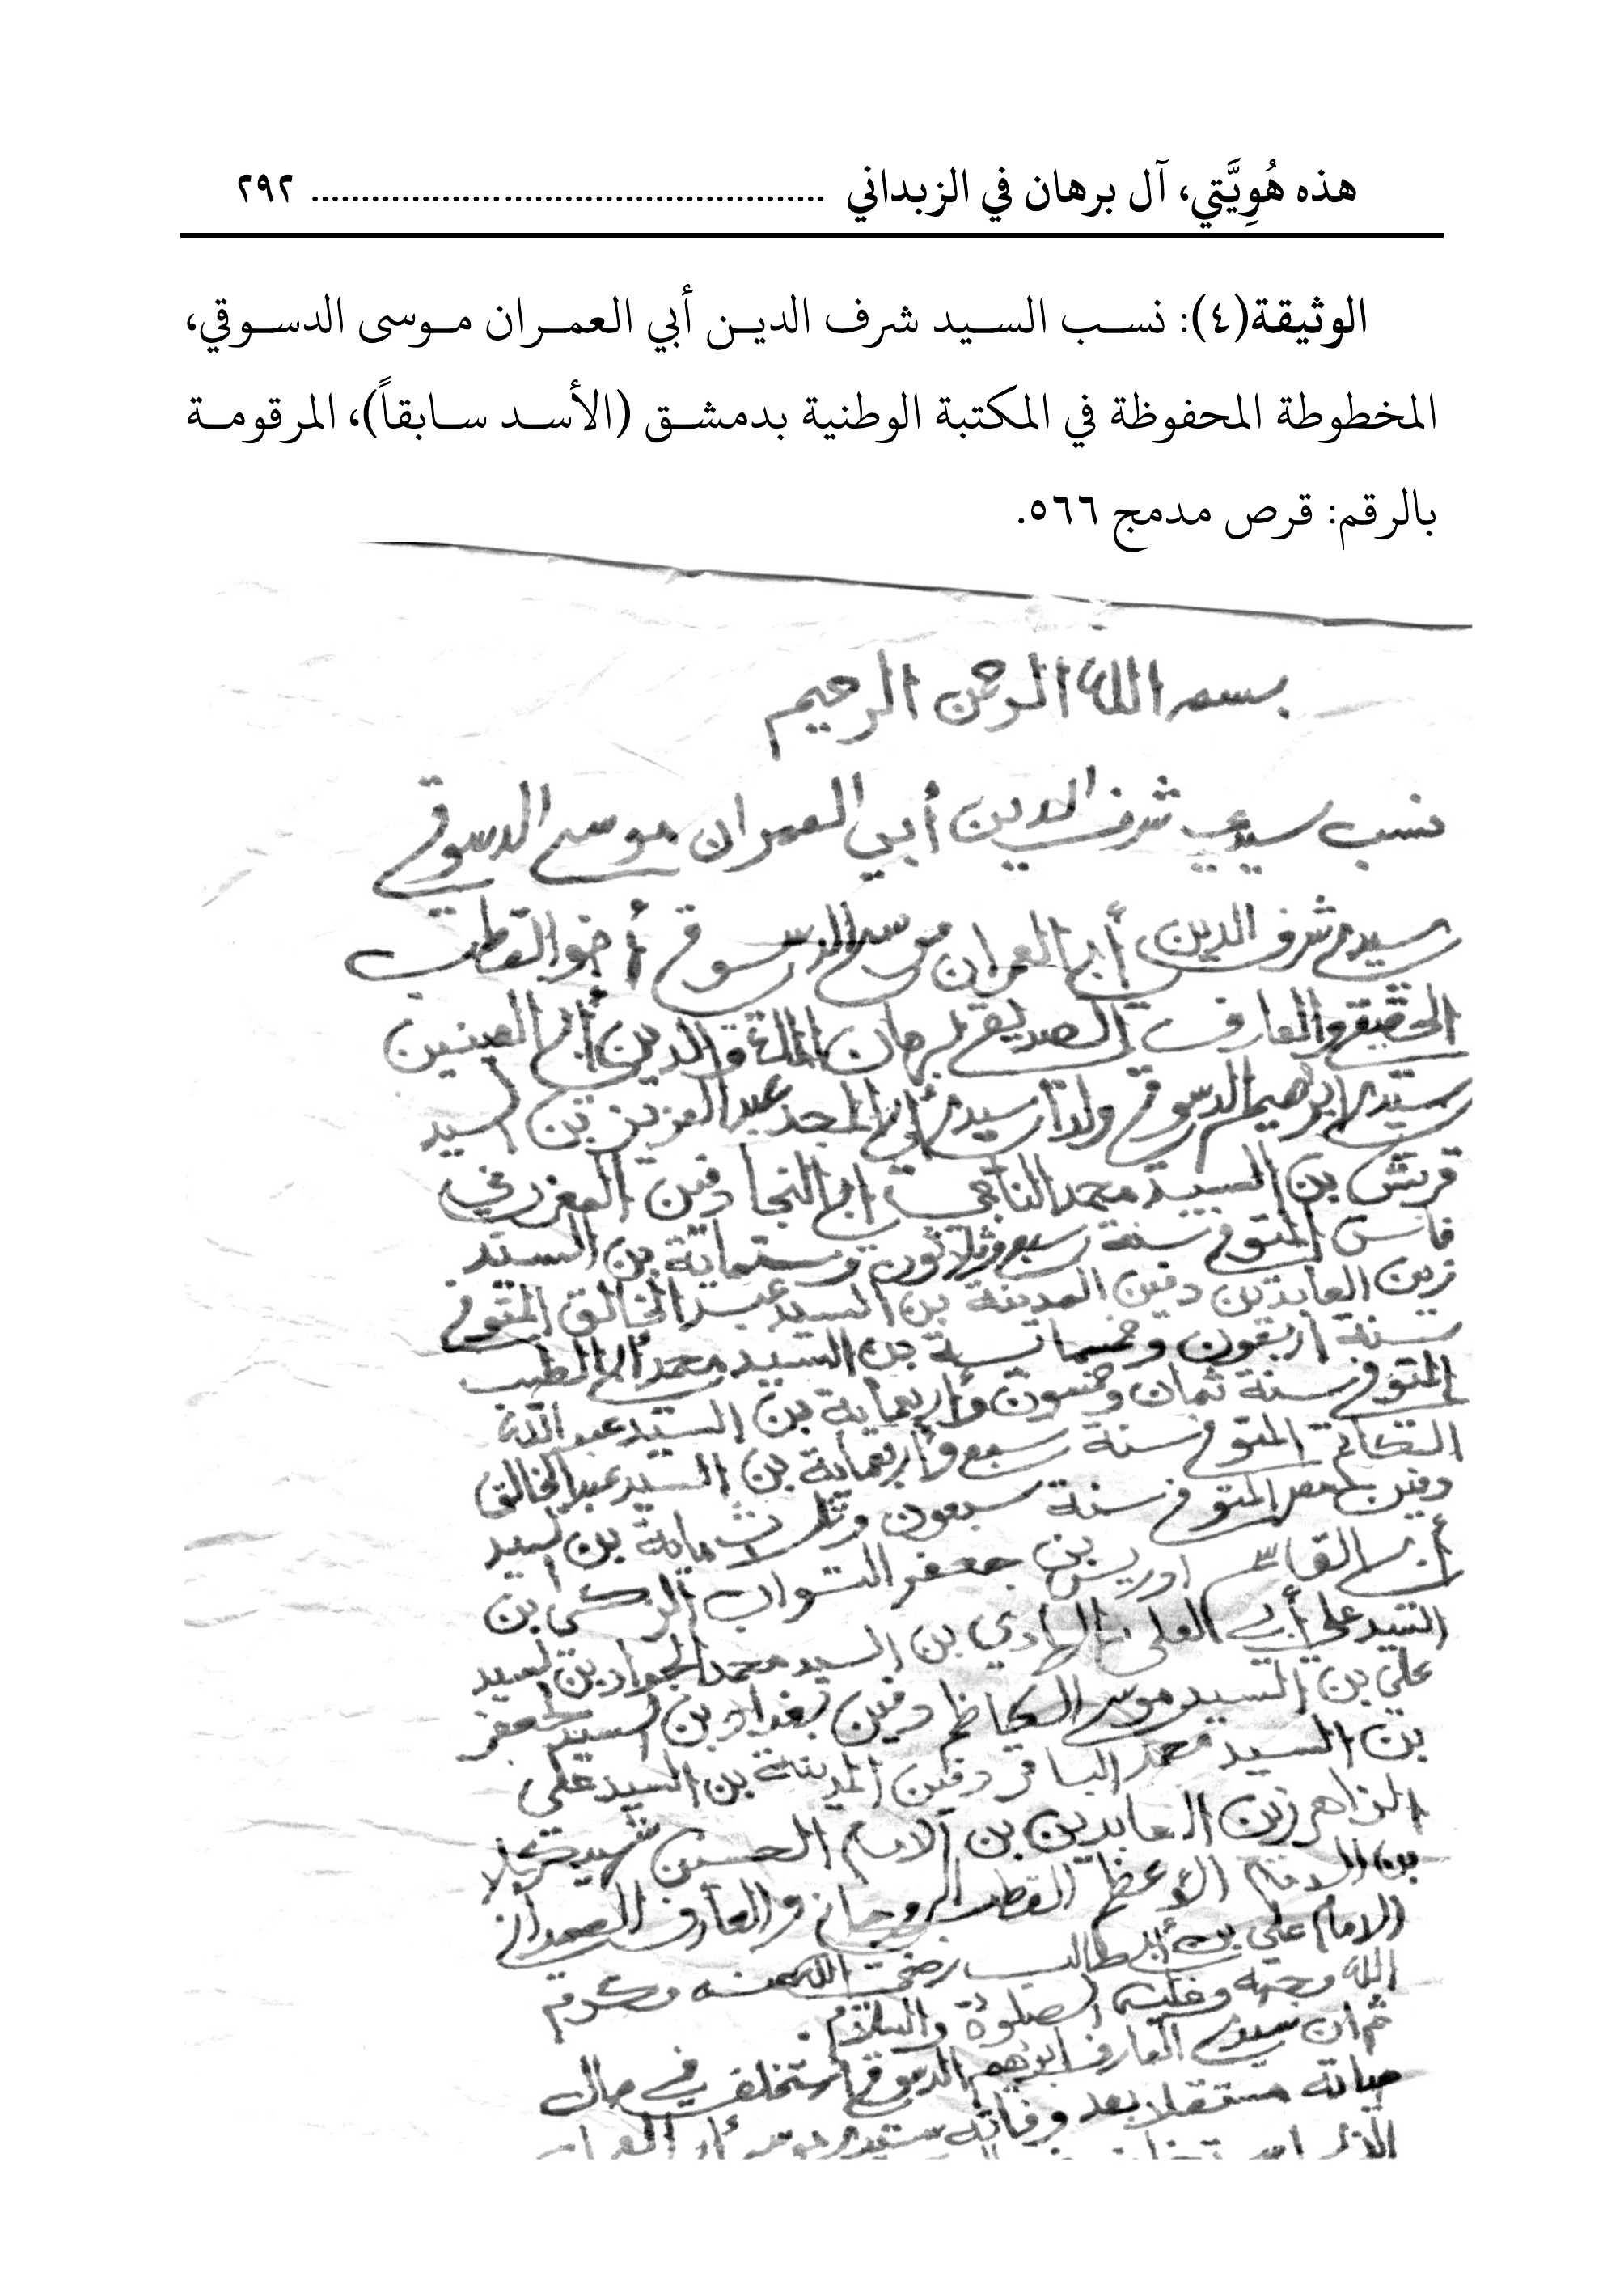 هذه هُوِيَّتي، آل برهان في الزبداني ................................................... ٢٩٢
الوثيقة(٤): نسب السيد شرف الدين أبي العمران موسى الدسوقي،
المخطوطة المحفوظة في المكتبة الوطنية بدمشق (الأسد سابقاً)، المرقومة
بالرقم: قرص مدمج ٥٦٦.
بسم الله الرحمن الرحيم
نسب سيدي شرف الدين أبي العمران موسى الدسوقي
سيدي شرف الدين أبي العمران موسى الدسوقي أخو القطب
الحقيقي والعارف الصديقي برهان الملة والدين أبي العينين
سيدي ابراهيم الدسوقي ولدا سيدي أبي المجد عبد العزيز بن السيد
قريش بن السيد محمد الناجي ابي النجا دفين المغرب في
فاس المتوفي سنة سبع وثلاثون وستماية بن السيد
زين العابدين دفين المدينة بن السيد عبد الخالق المتوفي
سنة اربعون وخمسماية بن السيد محمد أبي الطيب
المتوفي سنة ثمان وخمسون وأربعماية بن السيد عبد الله
الكاتم المتوفي سنة سبع وأربعماية بن السيد عبد الخالق
دفين بمصر المتوفي سنة سبعون وثلاث ماية بن السيد
أبي القاسم ادريس بن جعفر التواب الزكي بن
السيد علي أبي العلى الهادي بن السيد محمد الجواد بن السيد
علي بن السيد موسى الكاظم دفين بغداد بن السيد جعفر
بن السيد محمد الباقر دفين المدينة بن السيد علي
الزاهر زين العابدين بن الامام الحسين شهيد كربلا
بن الامام الأعظم القطب الروحاني والعارف الصمداني
الامام علي بن أبي طالب رضي الله عنه وكرم
الله وجهه وعليه الصلوة والسلام.
ثم ان سيدي العارف ابراهيم الدسوقي استخلف في حال
حياته مستقلا بعد وفاته سيدي موسى أبي العمران